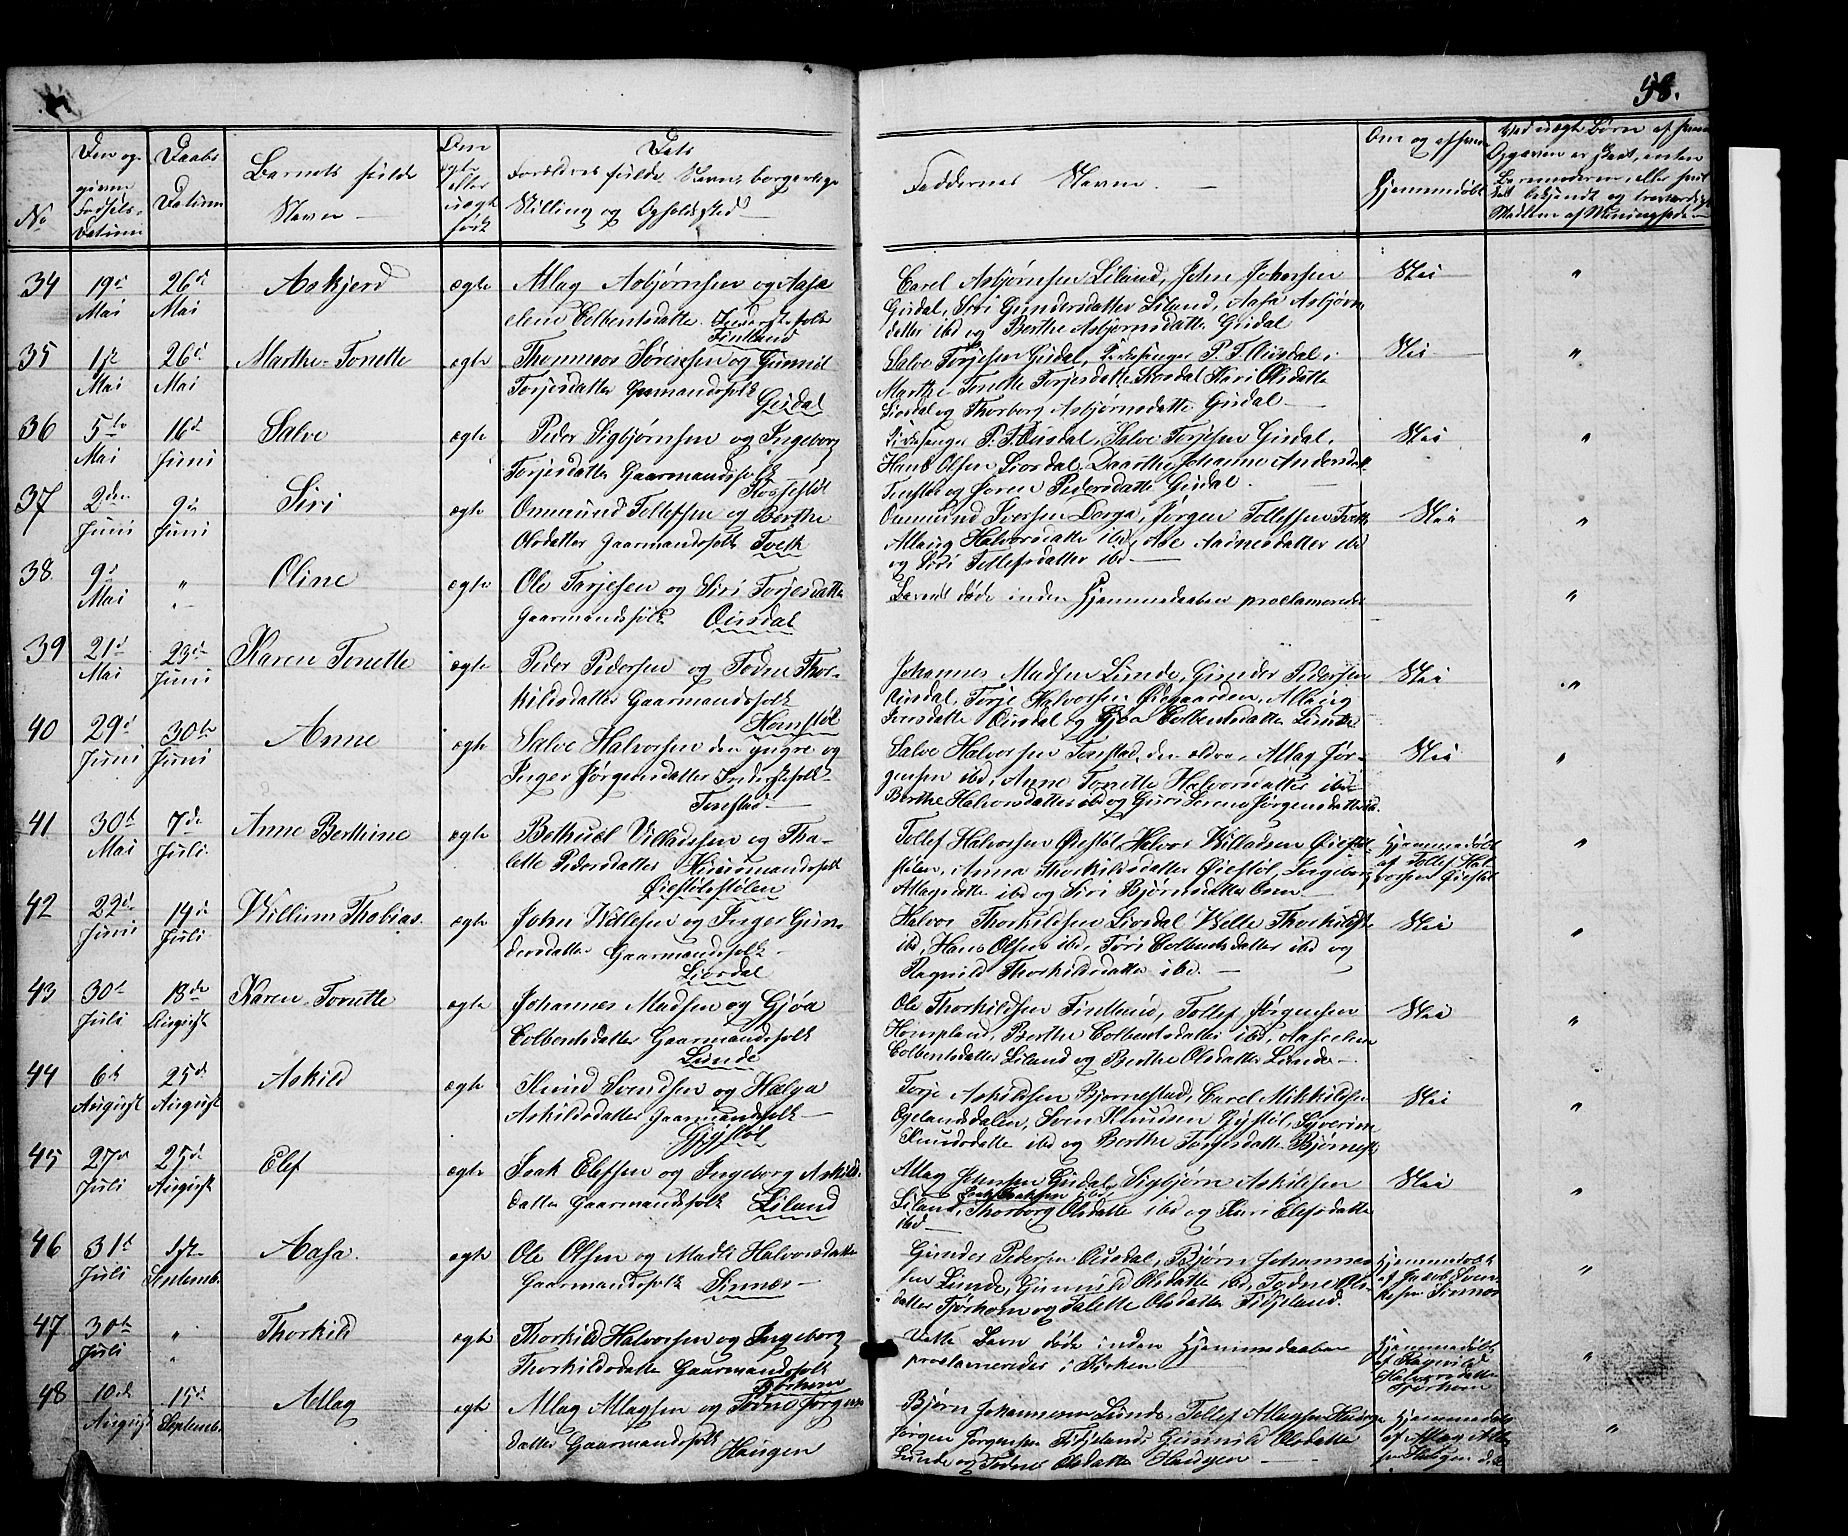 58.
No
Den og-
givne
Fødsels-
Datum
Daabs
Datum
Barnets fulde
Navn
Om
ægte
eller
uægte
født
Dets
Forældres fulde Navn, borgerlige
Stilling og Opholdssted
Faddernes Navne.
Om og af hvem
Hjemmedøbt
Ved uægte Børn af hvem
Opgaven er skeet, enten
Barnemoderen, eller
bekjendt og troværdigt
Medlem af Menigheden
34 19de Mai 26de Mai Askjerd ægte
Atlag Asbjørnsen og Aase
elene Colbentsdatter. Inderstefolk
Finland
Carel Asbjørnsen Liland, John Johnsen
Gusdal, Siri Gundersdatter Liland, Aasa Asbjørn
datter ibd og Berthe Asbjørnsdatter Gusdal
Nei "
35 1ste Mai 26de Mai Marthe-Tonette ægte
Thommas Sørensen og Gunnil
Torjesdatter Gaarmandsfolk
Gusdal
Salve Torjesen Gusdal, Kirkesanger P. T. Ousdal,
Marthe Tonette Torjesdatter Kari Olsdatter
Liosdal og Thorborg Asbjørnsdatter Gusdal
Nei "
36 5te Mai 16de Juni Salve ægte
Peder Sigbjørnsen og Ingeborg
Torjesdatter Gaarmandsfolk
Kirkesanger P. T. Ousdal, Salve Torjesen Gusdal,
Hans Olsen Liosdal, Daarthe Johanne Andersdatt
og Søren Pedersdatter Gusdal.
Nei "
37 2den Juni 9de Juni Siri ægte
Ommund Tollefsen og Berthe
Olsdatter Gaarmandsfolk Tveth
Ommund Iversen Dorga, Jørgen Tollefsen Tveth
Atlaug Halvorsdatter ibd, Ase Aanensdatter ibd
og Siri Tollefsdatter ibd
Nei "
38 9de Mai " Oline ægte
Ole Tarjesen og Siri Torjesdatter
Gaarmandsfolk Ousdal
Barnet døde inden Hjemmedaaben proclameredes
"
39 21de Mai 23de Juni Karen Tonette ægte
Peder Pedersen og Todne Thor-
kildsdatter Gaarmandsfolk
Homstøl
Johannes Madsen Lunde, Gunder Pedersen
Ousdal, Torje Halvorsen Ødegaarden, Atlaug
Iversdatter Ousdal og Gjøa Colbentsdatter Lunde
Nei "
40 29de Juni 30te Juni Anne ægte
Salve Halvorsen den yngre og
Inger Jørgensdatter Inderstefolk
Tonstad
Salve Halvorsen Tonstad, den ældre, Atlag Jør-
gensen ibd, Anne Tonette Halvorsdatter ibd
Berthe Halvorsdatter ibd og Guri Serine Jørgensdatter ibd.
Nei "
41 30te Mai 7de Juli. Anne Berthine ægte
Bethuel Villadssen og Tha-
lette Pedersdatter Huusmandsfolk
Øiestølstølen
Tollef Halvorsen Øiestøl, Halvor Willadsen Øiestøl-
stølen, Anna Thorkildsdatter Øiestøl, Ingeborg
Atlagsdatter ibd og Siri Bjørnsdatter
Hjemmedøbt
af Tollef Hal-
vorsen Øiestøl
"
42 22de Juni 14de Juli Willum Thobias. ægte
John Vellesen og Inger Gun-
dersdatter Gaarmandsfolk
Liosdal
Halvor Thorkildsen Liosdal, Velle Thorkilds
ibd, Hans Olsen ibd, Tori Colbentsdatter ibd og
Ragnild Thorkildsdatter ibd.
Nei "
43 30te Juli 18de August Karen-Tonette ægte
Johannes Madsen og Gjøa
Colbentsdatter Gaarmandsfolk
Lunde
Ole Thorkildsen Finland, Tollef Jørgensen
Hompland, Berthe Colbentsdatter ibd, Aaseelen
Colbentsdatter Liland og Berthe Olsdatter Lunde
Nei "
44 6te August 25de August Askild ægte
Knud Svendsen og Hælga
Askildsdatter Gaarmandsfolk
Torje Askildsen Bjørnestad, Carel Mikkilsen
Egelandsdalen, Sven Knudsen Syverine
Knudsdatter ibd og Berthe Torjesdatter Bjørnest
Nei "
45 27de Juli 25de August Elef ægte
Isak Elefsen og Ingeborg Askilds
datter Gaarmandsfolk Liland
Atlag Johnsen Gusdal, Sigbjørn Askildsen
Liland, Thorborg Olsdatter ibd og Kari Elefsdatter
ibd
Nei "
46 31te Juli 1ste Septemb. Aasa. ægte
Ole Olsen og Madli Halvorsdatter
Gaarmandsfolk Sinnæs
Gunder Pedersen Ousdal, Bjørn Johannes-
sen Lunde, Gunnild Olsdatter ibd, Todne Ols-
datter Tjørhom og Talette Olsdatter Fidjeland.
Hjemmedøbt
af Jacob Sven-
Sinnæs
"
47 30te Juli " Thorkild ægte
Thorkild Halvorsen og Ingeborg
Thorkildsdatter Gaarmandsfolk
Tjørhom
Dette Barn døde inden Hjemmedaaben
proclameredes i Kirken
Hjemmedøbt
af Ragnild
Halvorsdatter
Tjørhom
"
48 10de August 15de Septemb. Atlag ægte
Atlag Atlagsen og Todne Jørgens
datter Gaarmandsfolk
Haugen
Bjørn Johannesen Lunde, Tollef Atlagsen Haugen
Jørgen Jørgensen Fidjeland, Gunnild Olsdatter
Lunde og Todne Olsdatter Haugen
Hjemmedøbt
af Atlag Atlag
sen Haugen
"